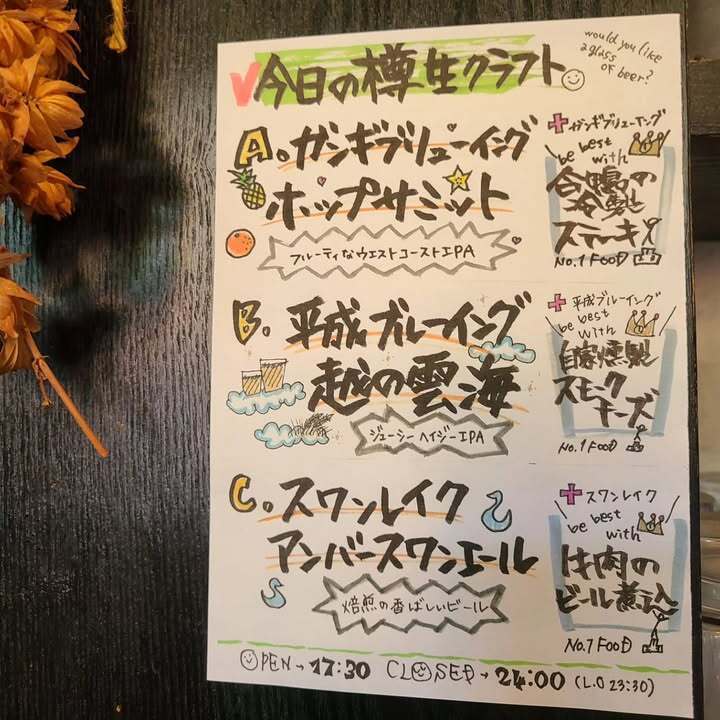 今日の樽生クラフト
would you like
a glass
of beer?
A. ガンギブリューイング
ホップサミット
フルーティなウエストコーストIPA
+ ガンギブリューイング
be best
with
合鴨の
冷製
ステーキ
No.1 FOOD
B. 平成ブルーイング
越の雲海
ジューシーヘイジーIPA
+ 平成ブルーイング
be best
with
自家燻製
スモーク
チーズ
No.1 FOOD
C. スワンレイク
アンバースワンエール
焙煎の香ばしいビール
+ スワンレイク
be best
with
牛肉の
ビール煮込
No.1 FOOD
OPEN→17:30 CLOSED→24:00 (L.O 23:30)